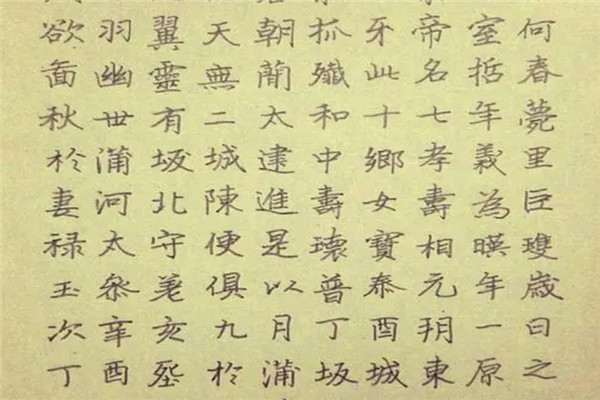 欲羽翼天朝抓牙帝室何
啚幽靈無蕳殲此名哲春
秋世有二太和十七年薨
於蒲坂城建中鄉孝義里
妻河北陳進壽女壽為巨
禄太守便是瓌寶相暎瓊
玉參差俱以普泰元年歲
次辛亥九月丁酉玥一日
丁酉塟於蒲坂城東原之